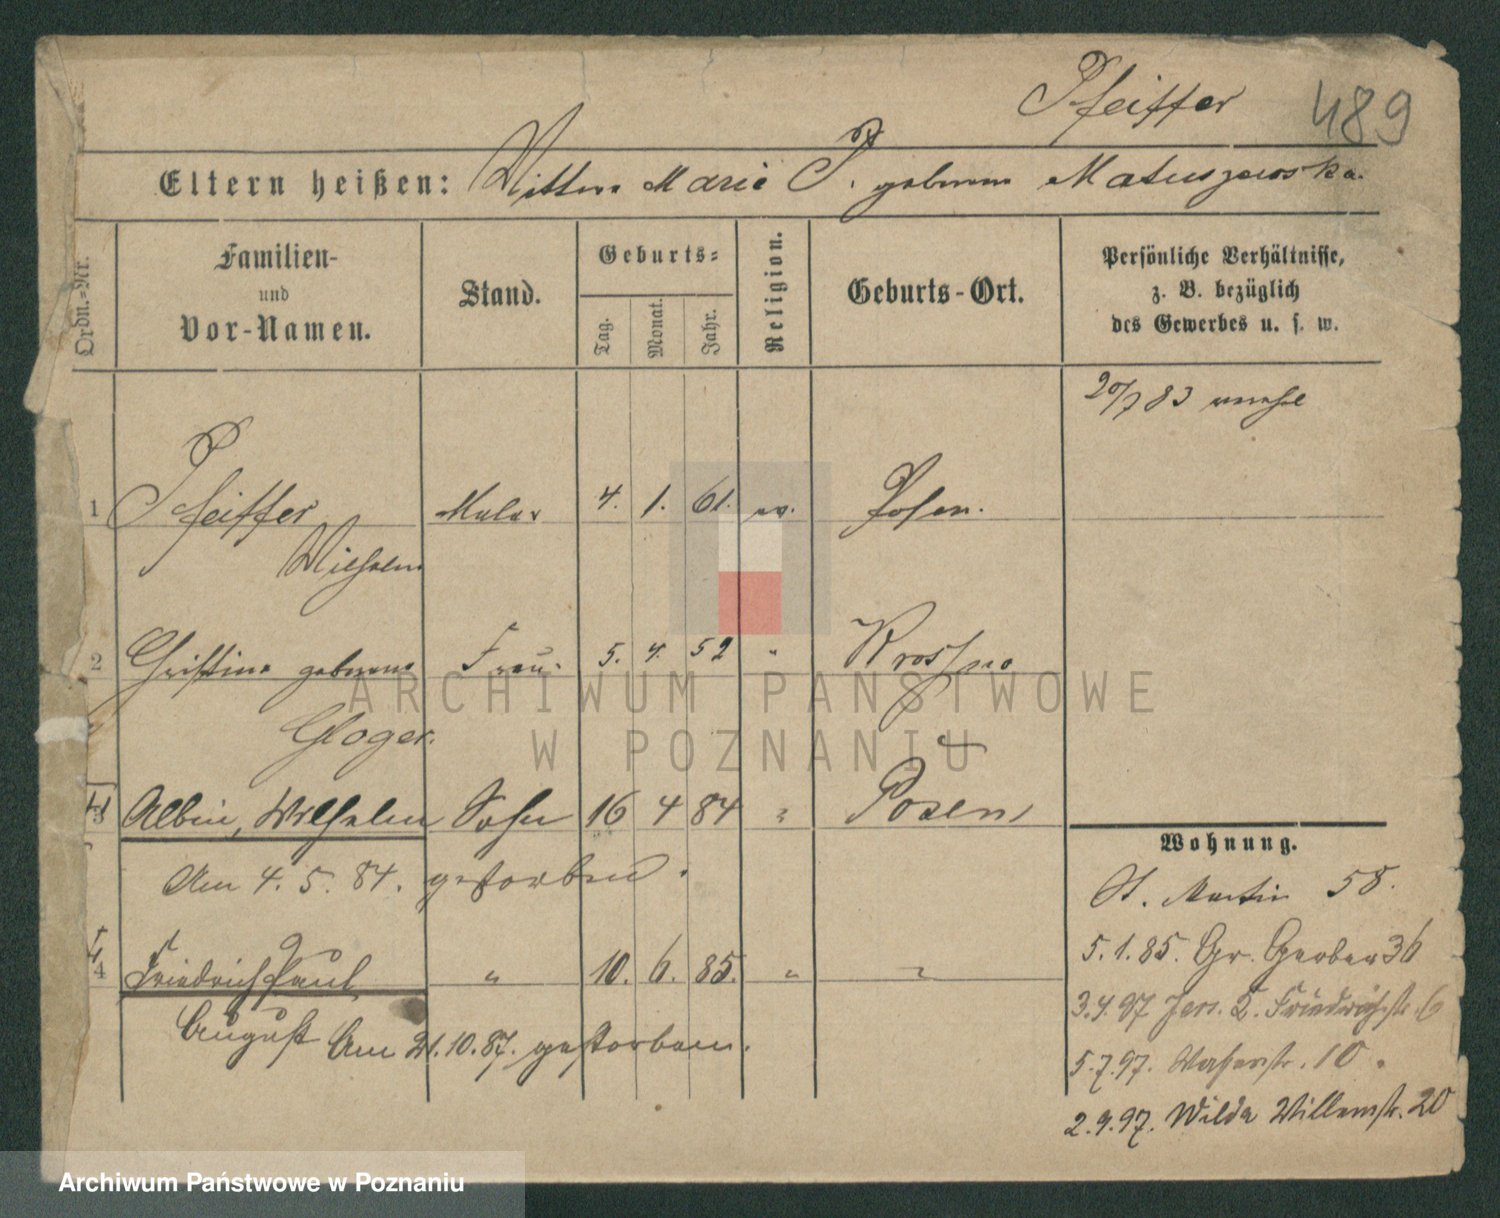 Pfeiffer 489
Eltern heißen: Wittwe Marie P. geborene Matuszewska.
Ordn.=Nr.
Familien-
und
Vor-Namen.
Stand.
Geburts=
Tag.
Monat.
Jahr.
Religion.
Geburts-Ort.
Persönliche Verhältnisse,
z. B. bezüglich
des Gewerbes u. s. w.
20/7 83
1 Pfeiffer Maler 4. 1. 61. ev. Posen.
Wilhelm
2 Christine geborene Frau. 5. 4. 52 " Krossno
Gloger.
3 Albin, Wilhelm Sohn 16 4 84 " Posen
Am 4. 5. 84. gestorben.
4 Friedrich Paul " 10. 6. 85. " "
August Am 21.10.87. gestorben.
Wohnung.
St. Martin 58.
5.1.85. Gr. Gerber 36
3.4.97 Jers. Friedrichstr. 6
5.7.97. Wasserstr. 10.
2.9.97. Wilda Willemstr. 20
ARCHIWUM PAŃSTWOWE
W POZNANIU
Archiwum Państwowe w Poznaniu